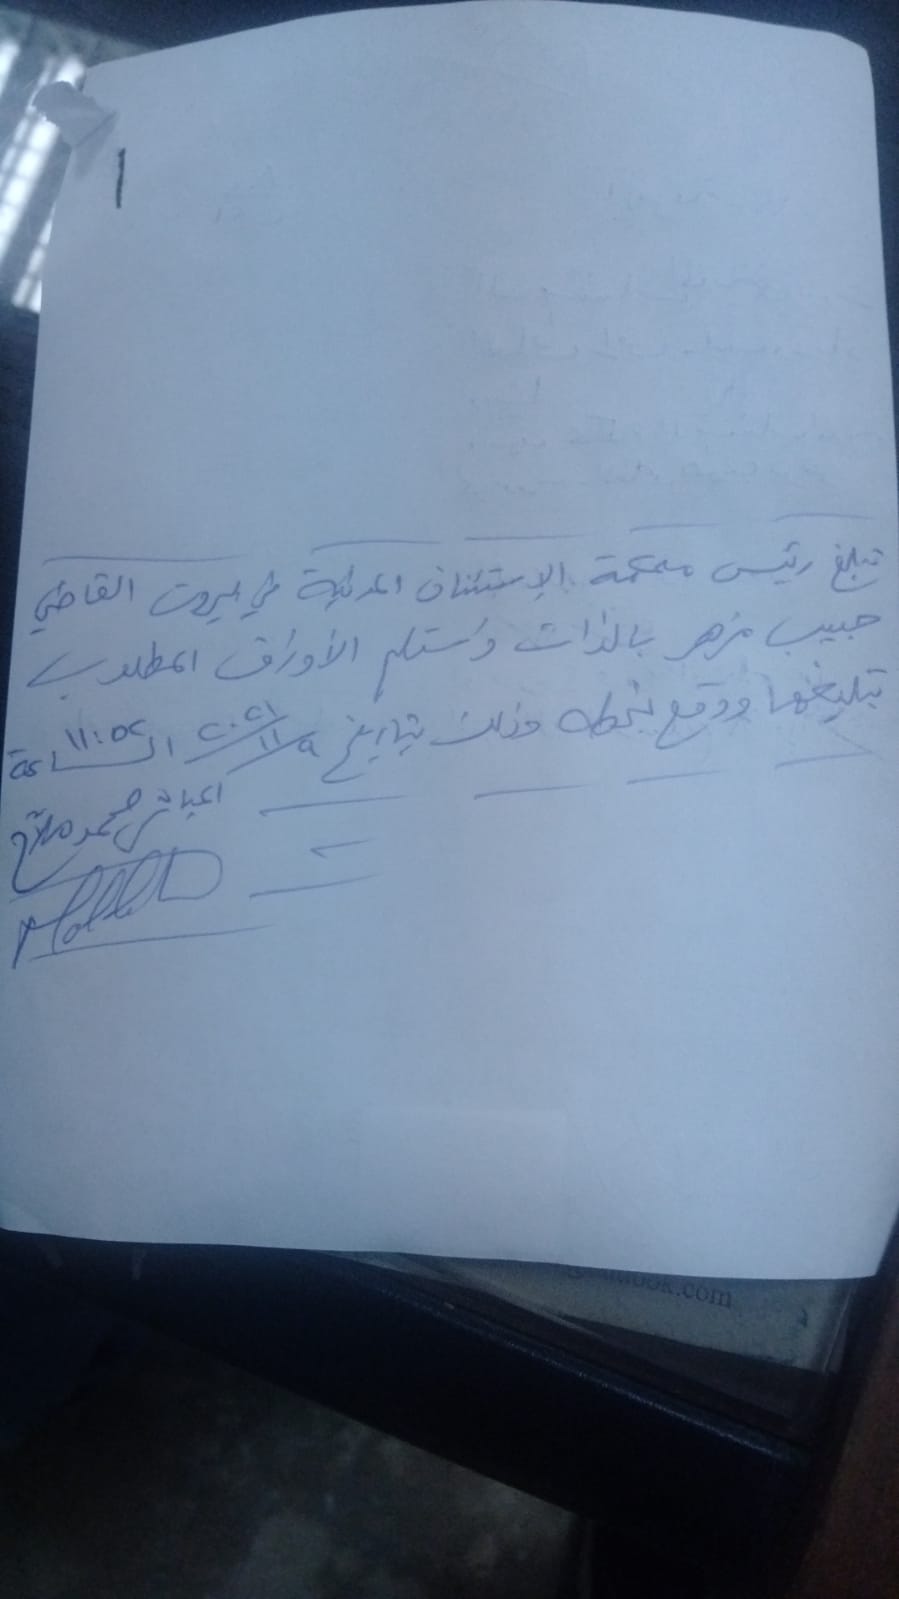 تبلغ رئيس محكمة الإستئناف المدنية في بيروت القاضي
حبيب مزهر بالذات واستلم الأوراق المطلوب
تبليغها ووقع بخطه وذلك بتاريخ ٩/١١/٢٠٢١ الساعة ١١:٥٢
المباشر محمد
ook.com